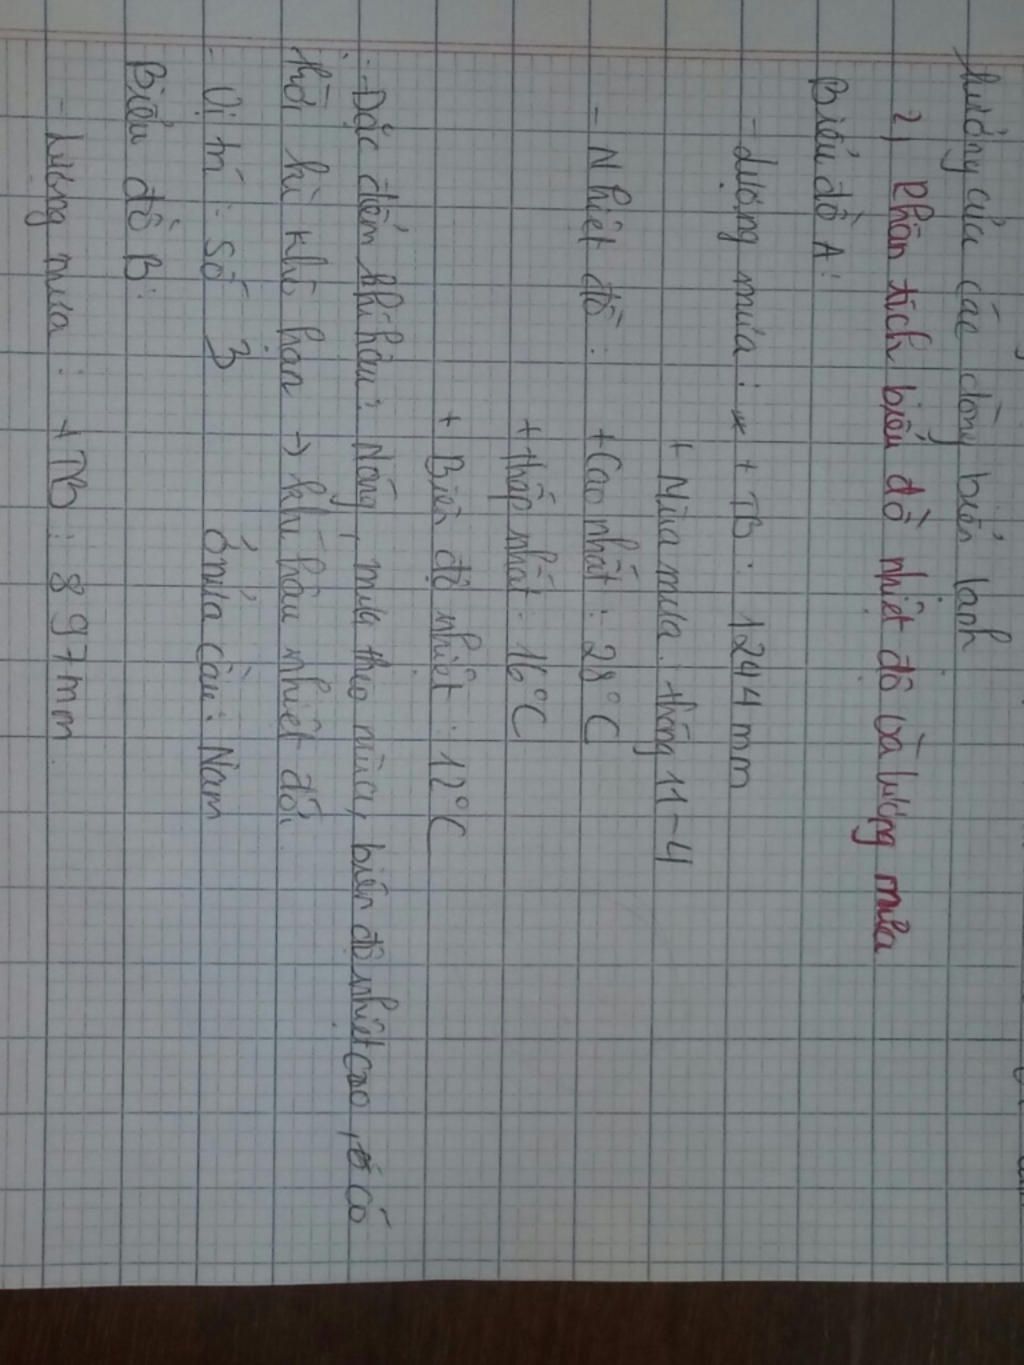 hưởng của các dòng biển lạnh
2, Phân tích biểu đồ nhiệt độ và lượng mưa
Biểu đồ A:
- Lượng mưa: + TB: 1244mm
+ Mùa mưa: tháng 11-4
- Nhiệt độ: + Cao nhất: 28°C
+ thấp nhất: 16°C
+ Biên độ nhiệt: 12°C
- Đặc điểm khí hậu: Nóng, mưa theo mùa, biên độ nhiệt cao, có
thời kì khô hạn → khí hậu nhiệt đới.
- Vị trí: số 3 ở nửa cầu: Nam
Biểu đồ B:
- Lượng mưa: + TB: 897mm